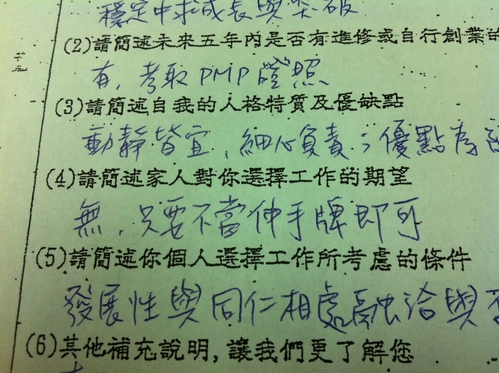 穩定中求成長與突破
(2)請簡述未來五年內是否有進修或自行創業的
有，考取PMP證照
(3)請簡述自我的人格特質及優缺點
動靜皆宜，細心負責；優點為
(4)請簡述家人對你選擇工作的期望
無，只要不當伸手牌即可
(5)請簡述你個人選擇工作所考慮的條件
發展性與同仁相處融洽與
(6)其他補充說明,讓我們更了解您